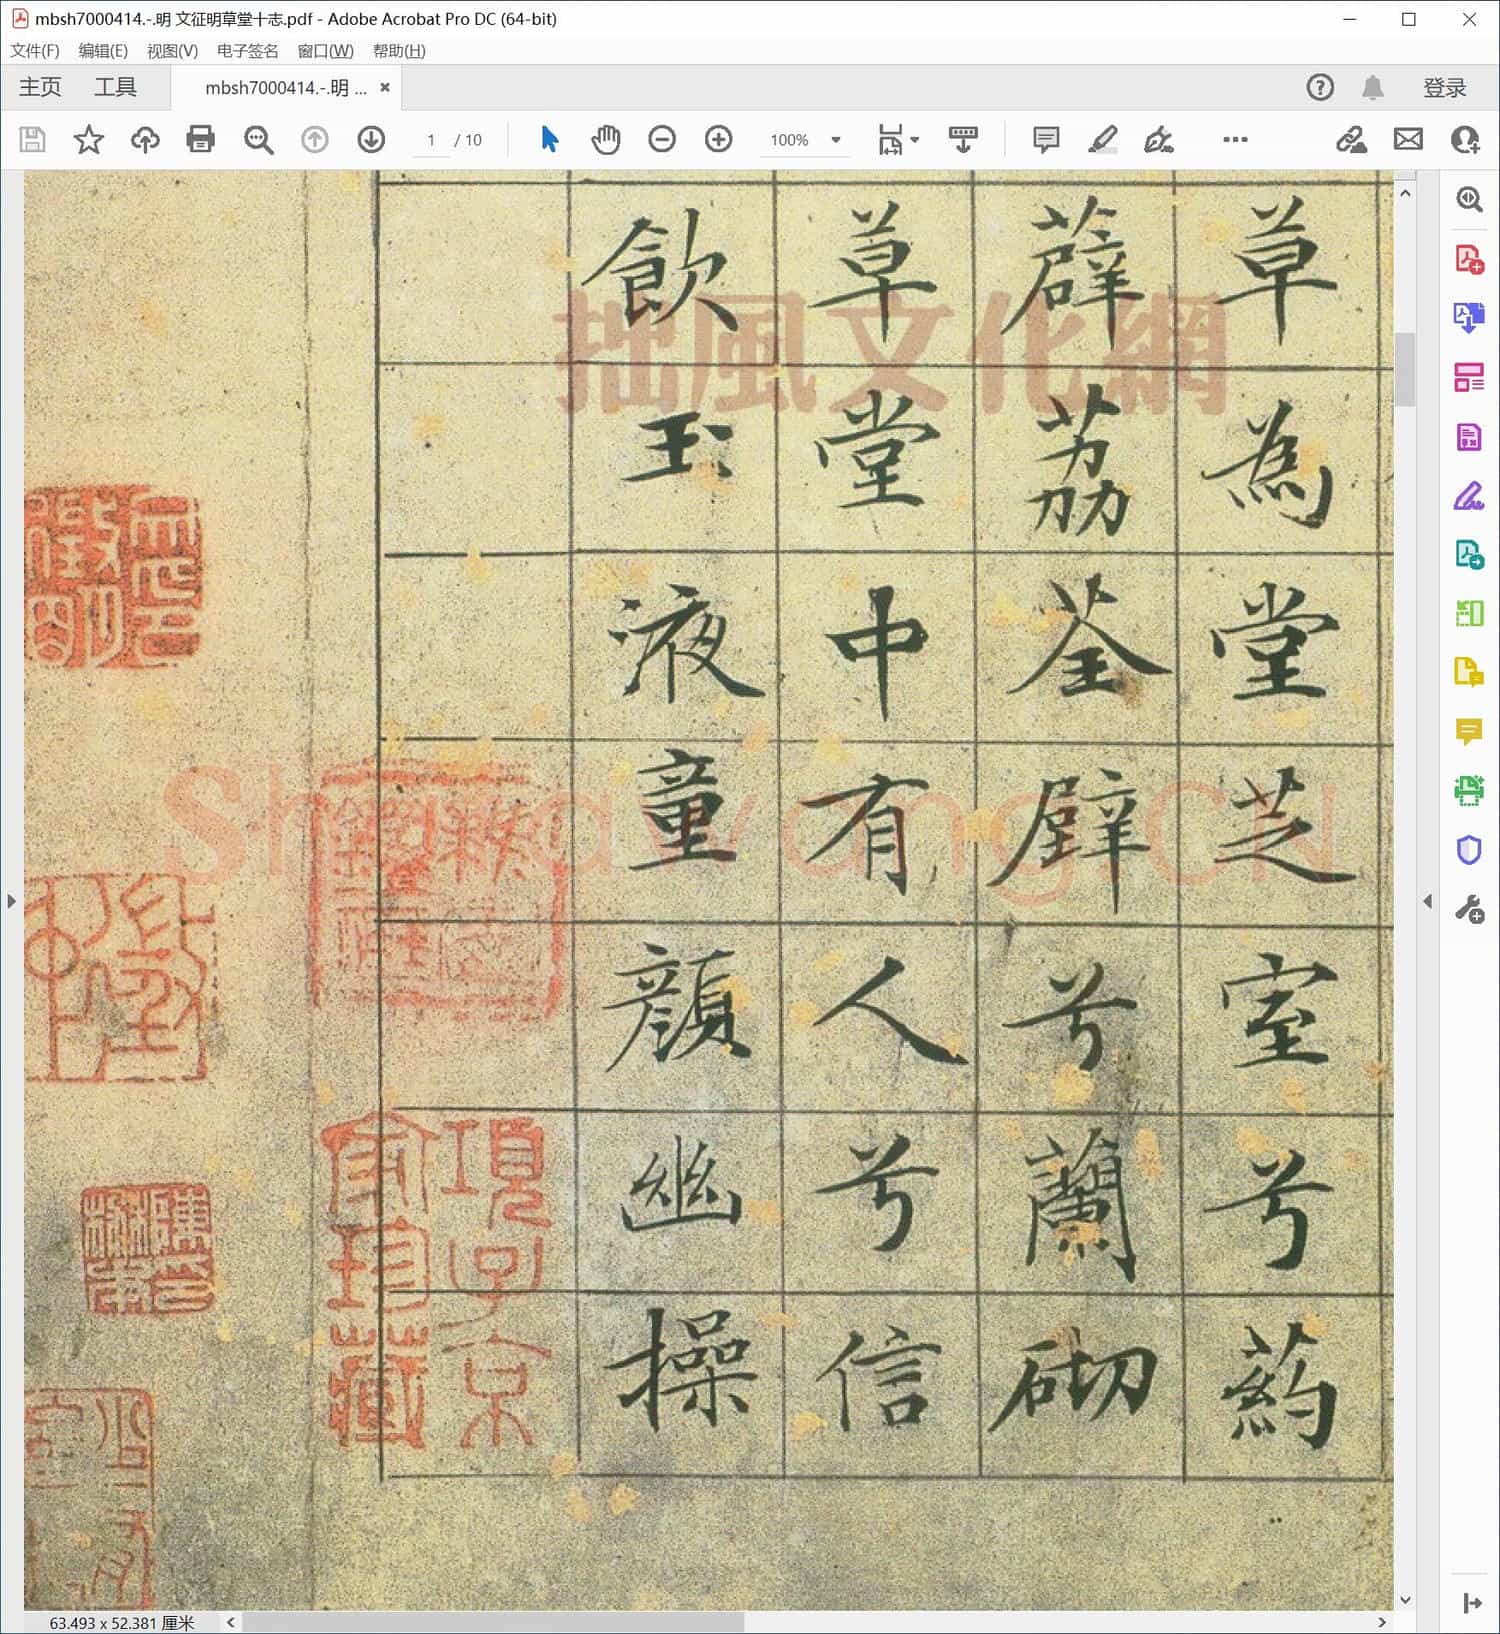 mbsh7000414.-.明 文征明草堂十志.pdf - Adobe Acrobat Pro DC (64-bit)
文件(F) 编辑(E) 视图(V) 电子签名 窗口(W) 帮助(H)
主页 工具 mbsh7000414.-.明 ... 登录
1 / 10 100%
草為堂芝室兮葯
薜荔荃壁兮蘭砌
草堂中有人兮信
飲玉液童顏幽操
拙風文化網
Shufawang.CN
項子京
家珍藏
63.493 x 52.381 厘米